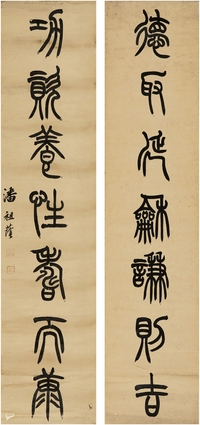 德取延龢謙則吉
功資養性壽而康
潘祖蔭